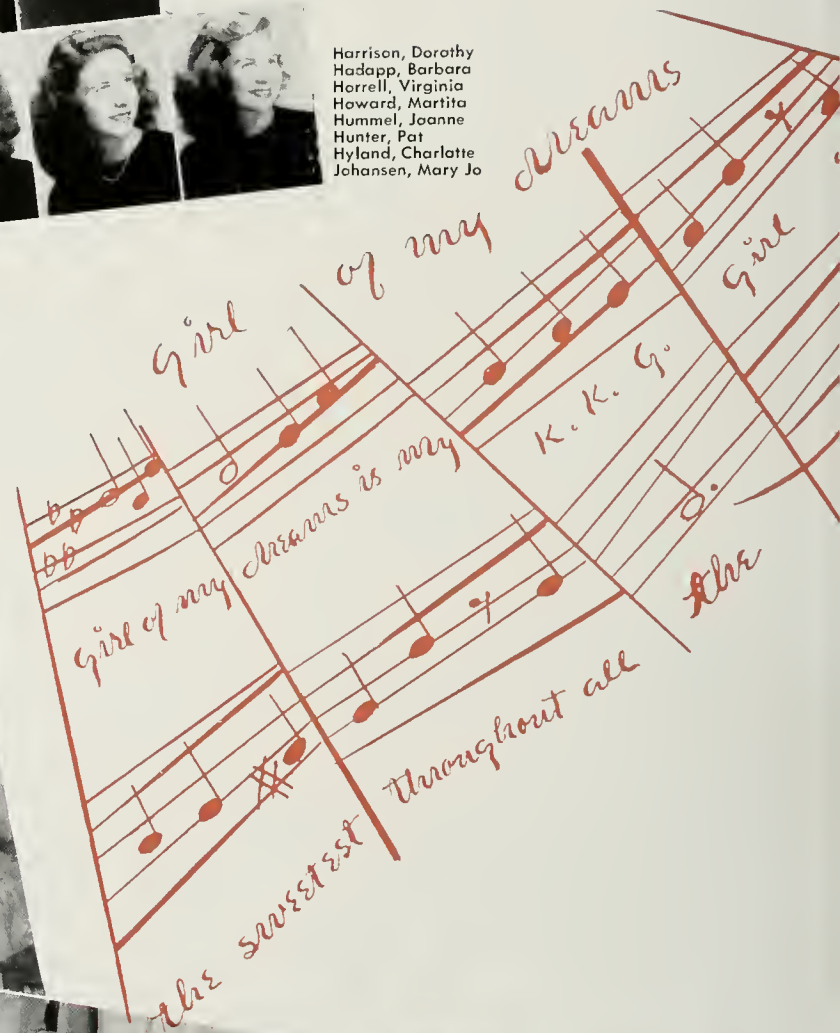 Harrison, Dorothy
Hadapp, Barbara
Horrell, Virginia
Howard, Martita
Hummel, Joanne
Hunter, Pat
Hyland, Charlotte
Johansen, Mary Jo
Girl of my dreams
Girl of my dreams is my K. K. G. Girl
the sweetest throughout all the